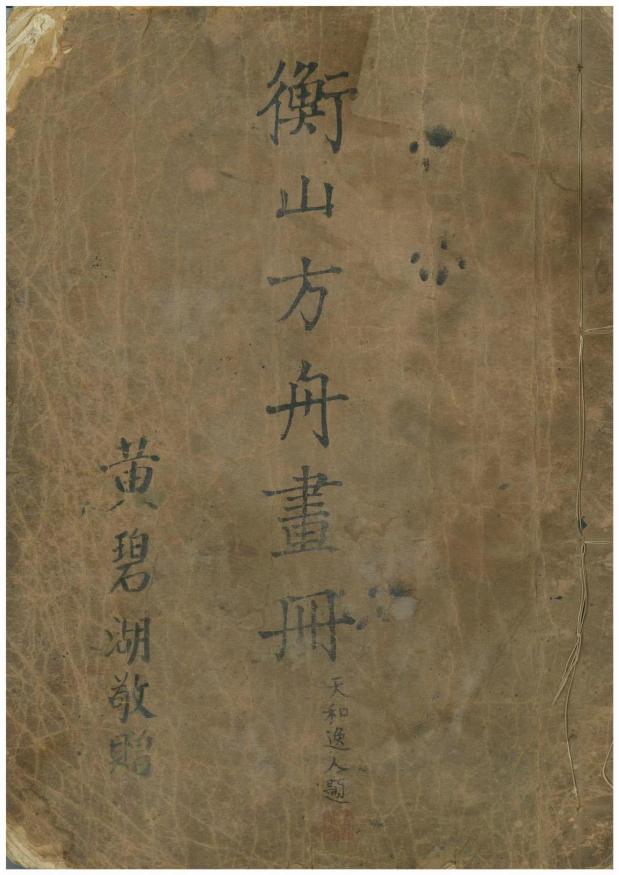 衡山方舟畫冊
天和逸人題
黃碧湖敬贈